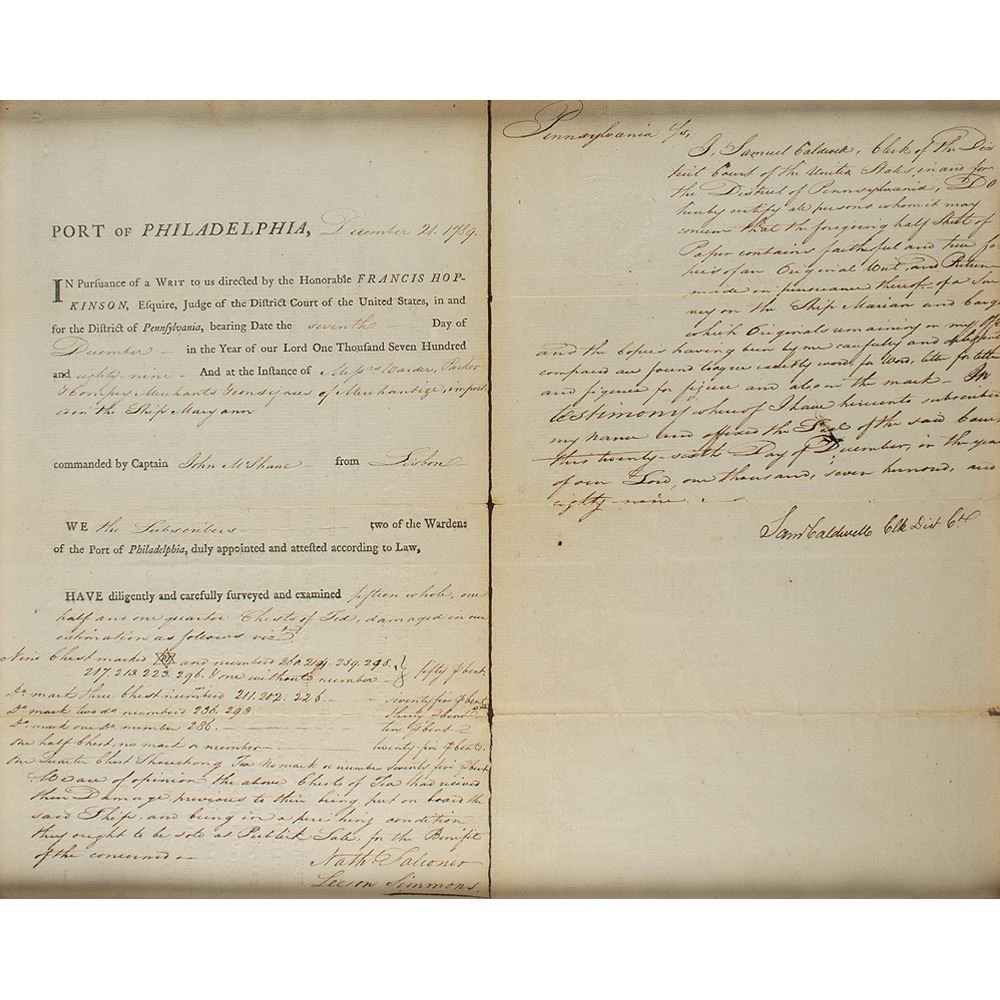 PORT OF PHILADELPHIA, December 21. 1789.
IN Pursuance of a WRIT to us directed by the Honorable FRANCIS HOP-
KINSON, Esquire, Judge of the District Court of the United States, in and
for the District of Pennsylvania, bearing Date the seventh Day of
December in the Year of our Lord One Thousand Seven Hundred
and eighty nine And at the Instance of Messrs Warder, Parker
& Compy Merchants Consignees of Merchandize, import
in the Ship Mary ann
commanded by Captain John McShane from Lisbon
WE the Subscribers two of the Wardens
of the Port of Philadelphia, duly appointed and attested according to Law,
HAVE diligently and carefully surveyed and examined fifteen whole, one
half and one quarter Chests of Tea, damaged in our
estimation as follows vizt
Nine Chest marked and numberd 260. 219. 259. 298.
217. 213. 223. 296. & one without number fifty pr Cent.
Do mark three Chest numberd 211. 202. 226 seventy five pr Cent
Do mark two do numberd 236. 293 thirty pr Cent
Do mark one do number 286. ten pr Cent
One half Chest, no mark or number twenty-five pr Cent.
One Quarter Chest Shouchong Tea No mark or number seventy five pr Cent
We are of opinion the above Chests of Tea had receved
their Damage previous to their being put on board the
said Ship, and being in a perishing condition
they ought to be sold at Publick Sale, for the Benifit
of the concerned
Nath Falconer
Leeson Simmons.
Pennsylvania ss,
I, Samuel Caldwell, Clerk of the Dis
trict Court of the United States, in and for
the District of Pennsylvania, DO
hereby certify all persons whom it may
concern that the foregoing half Sheet of
Paper contains faithful and true Co
pies of an Original Writ, and Return
made in pursuance thereof of a Sur
vey on the Ship Marian and Cargo
which Originals remaining in my
and the Copies having been by me carefully and
compared are found to agree exactly word for Word, letter for letter
and figure for figure and also in the mark - In
testimony whereof I have hereunto subscribed
my Name and affixed the Seal of the said Court
this twenty-sixth Day of December, in the year
of our Lord, one thousand, seven hundred, and
eighty-nine.
Saml Caldwell Clk Dist Ct